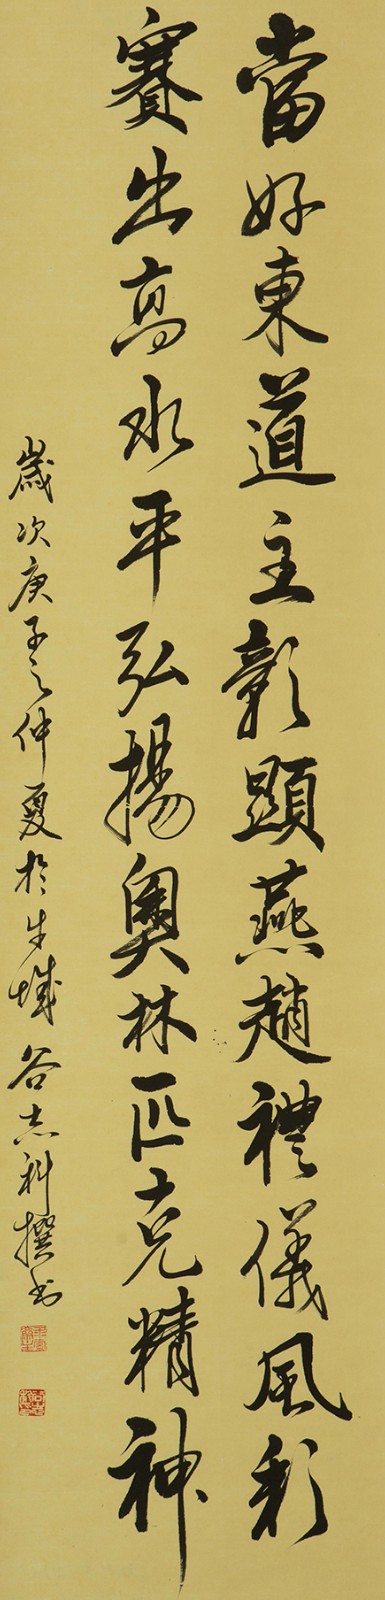 當好東道主彰顯燕趙禮儀風彩
賽出高水平弘揚奧林匹克精神
歲次庚子之仲夏於牛城谷志科撰书